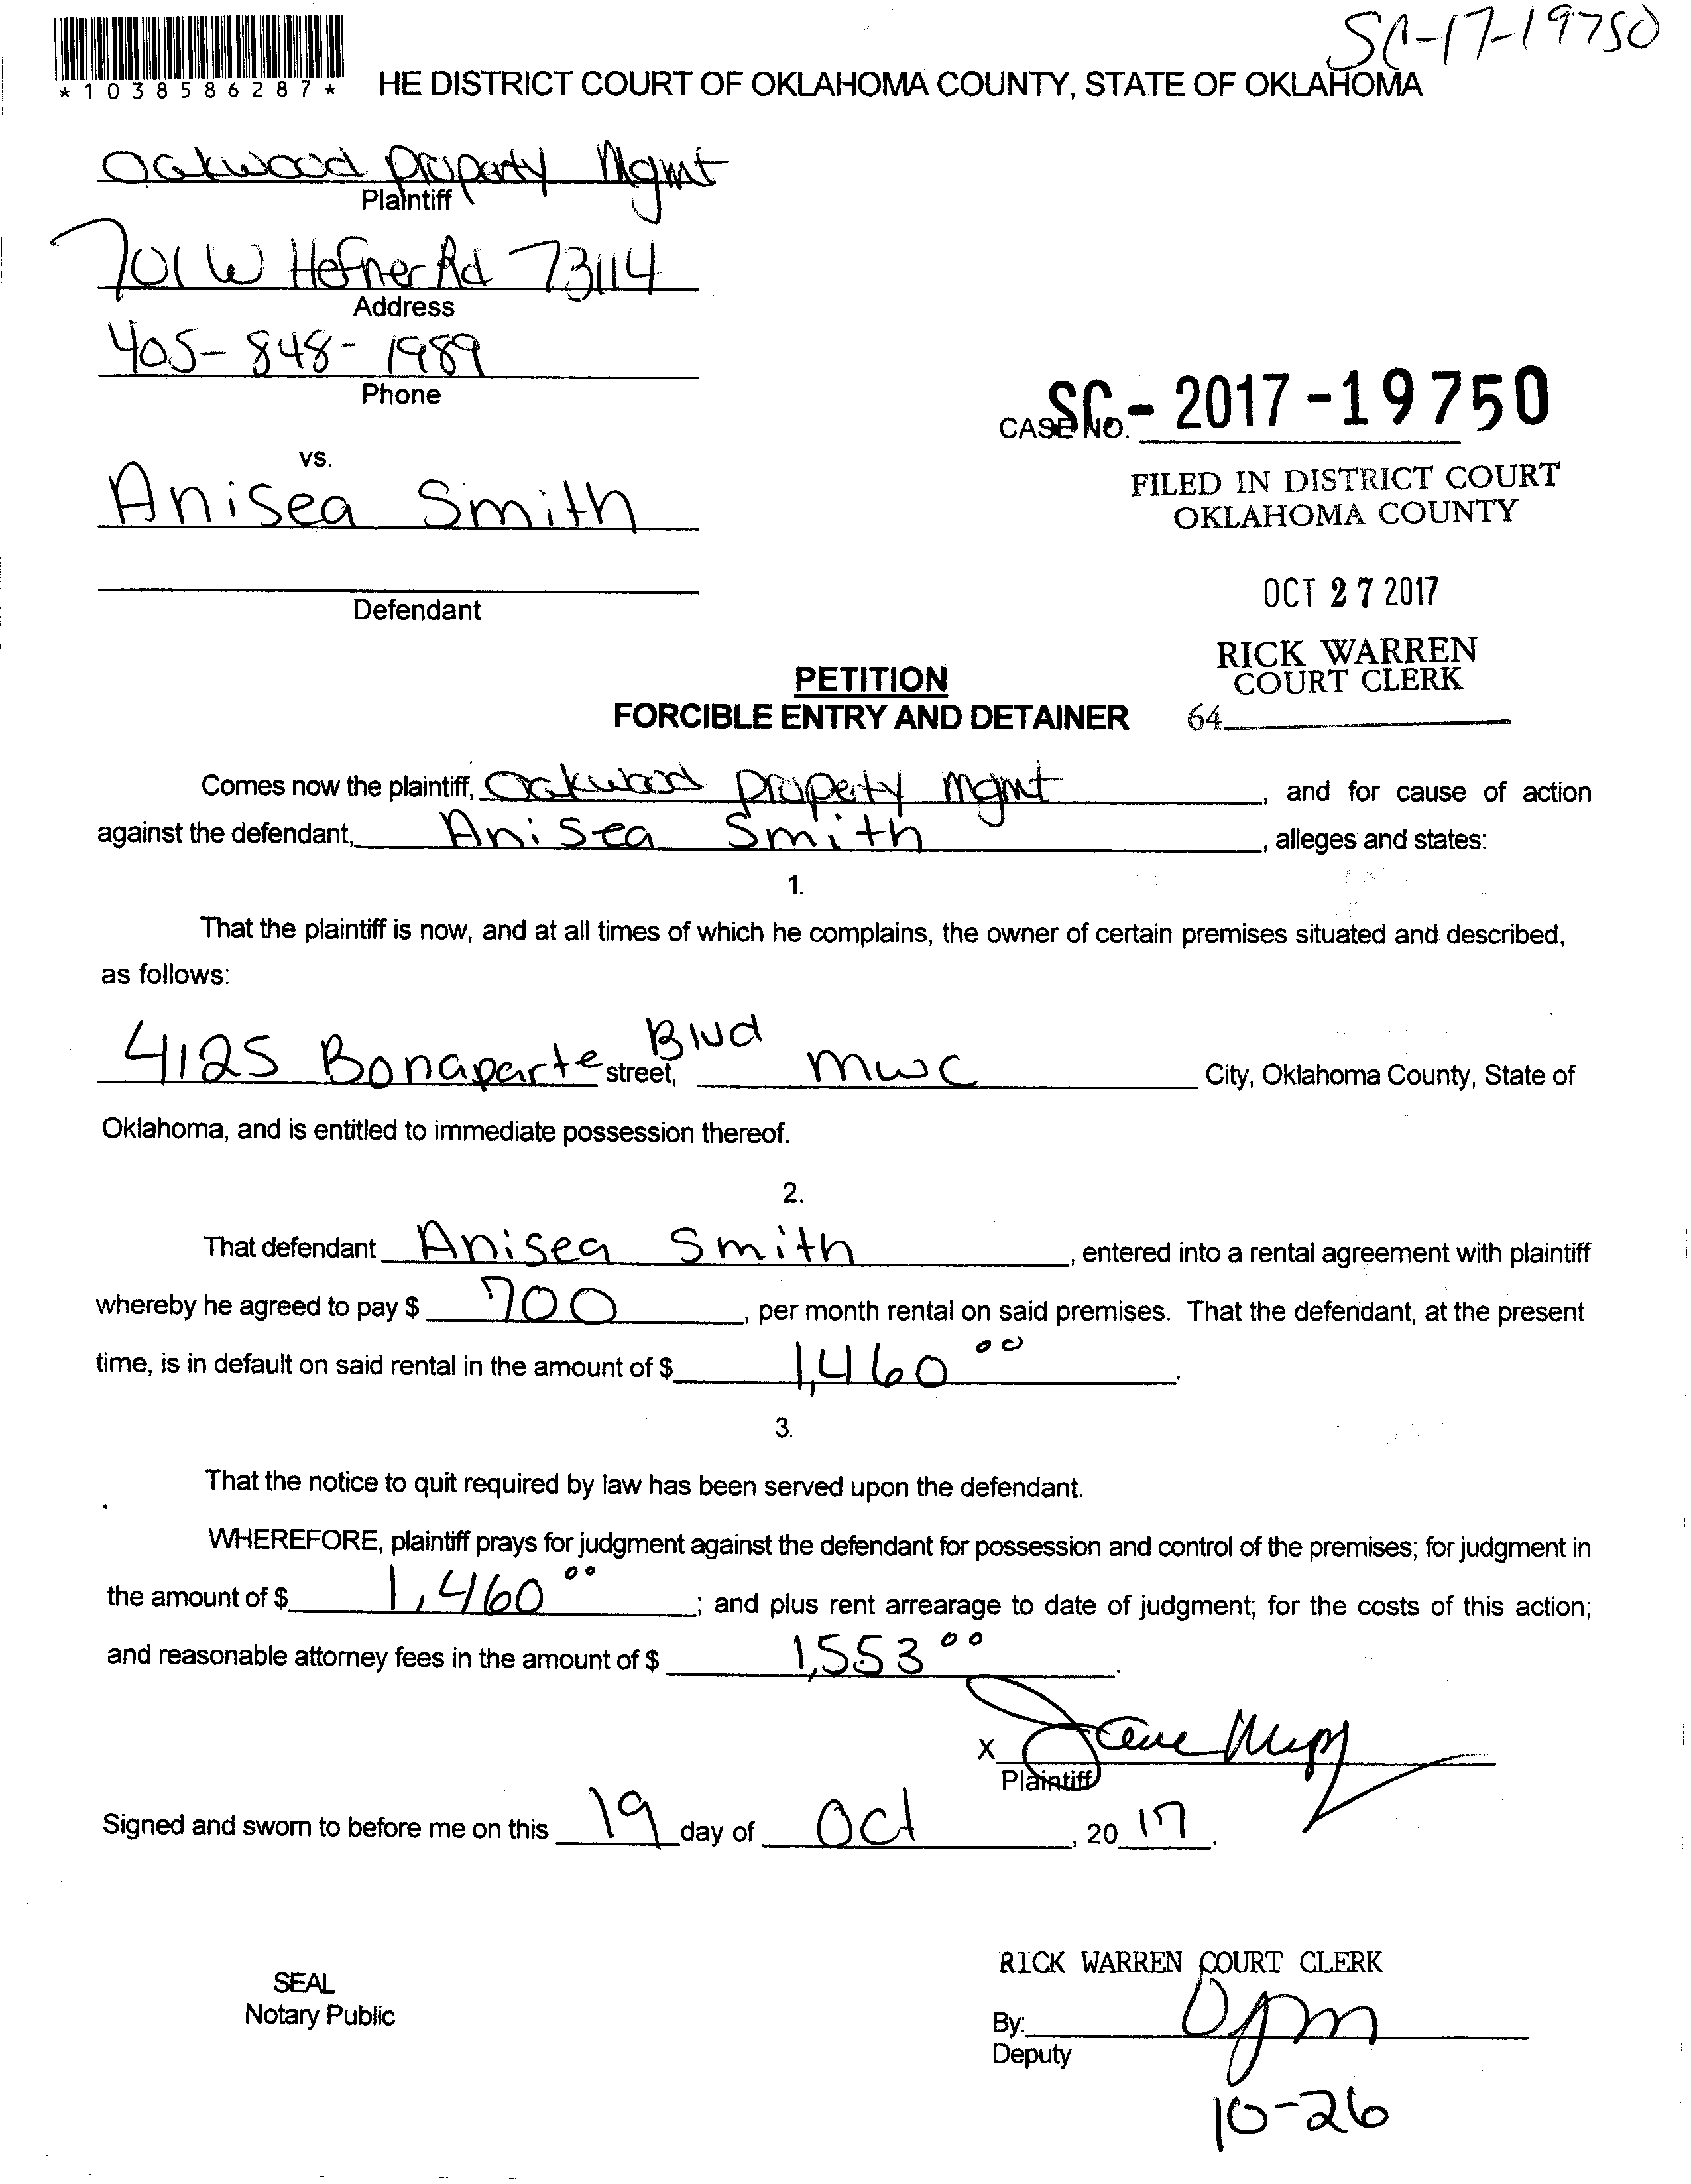 SC-17-19750
*1038586287*
HE DISTRICT COURT OF OKLAHOMA COUNTY, STATE OF OKLAHOMA
Oakwood Property Mgmt
Plaintiff
701 W Hefner Rd 73114
Address
405-848-1989
Phone
CASE NO. SC-2017-19750
vs.
Anisea Smith
FILED IN DISTRICT COURT
OKLAHOMA COUNTY
Defendant
OCT 27 2017
RICK WARREN
COURT CLERK
64
PETITION
FORCIBLE ENTRY AND DETAINER
Comes now the plaintiff, Oakwood Property Mgmt, and for cause of action
against the defendant, Anisea Smith, alleges and states:
1.
That the plaintiff is now, and at all times of which he complains, the owner of certain premises situated and described,
as follows:
4125 Bonaparte Blvd street, MWC City, Oklahoma County, State of
Oklahoma, and is entitled to immediate possession thereof.
2.
That defendant Anisea Smith, entered into a rental agreement with plaintiff
whereby he agreed to pay $ 700, per month rental on said premises. That the defendant, at the present
time, is in default on said rental in the amount of $ 1,460 00.
3.
That the notice to quit required by law has been served upon the defendant.
WHEREFORE, plaintiff prays for judgment against the defendant for possession and control of the premises; for judgment in
the amount of $ 1,460 00; and plus rent arrearage to date of judgment; for the costs of this action;
and reasonable attorney fees in the amount of $ 1,553 00.
X
Plaintiff
Signed and sworn to before me on this 19 day of Oct, 20 17.
RICK WARREN COURT CLERK
SEAL
Notary Public
By:
Deputy
10-26